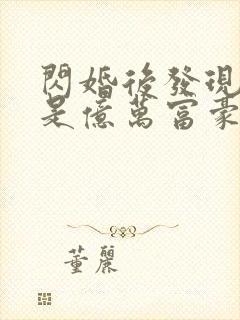 閃婚後發現
是億萬富豪
董麗